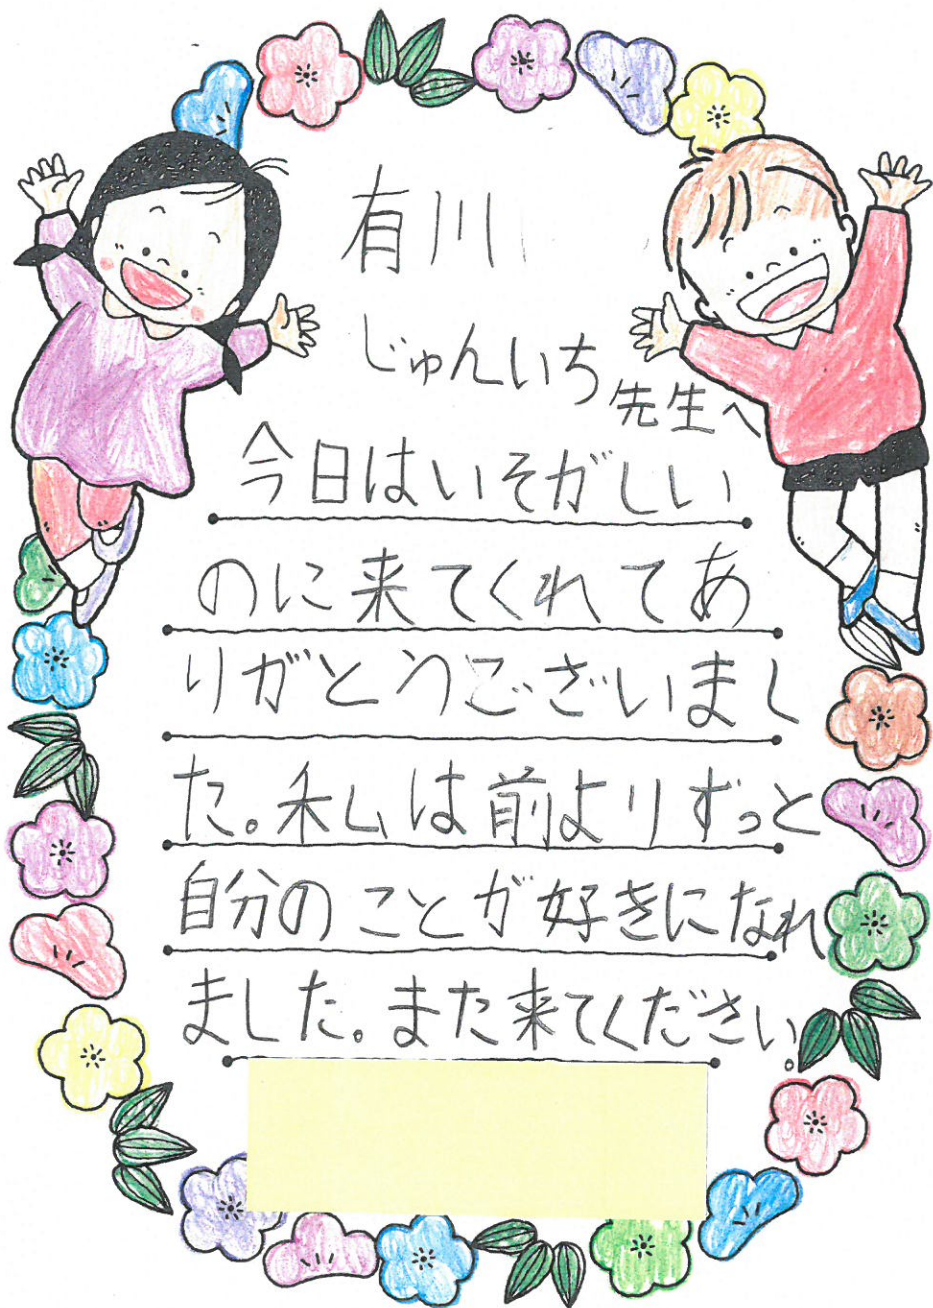 有川
じゅんいち
先生へ
今日はいそがしい
のに来てくれてあ
りがとうございまし
た。私は前よりずっと
自分のことが好きになれ
ました。また来てください。